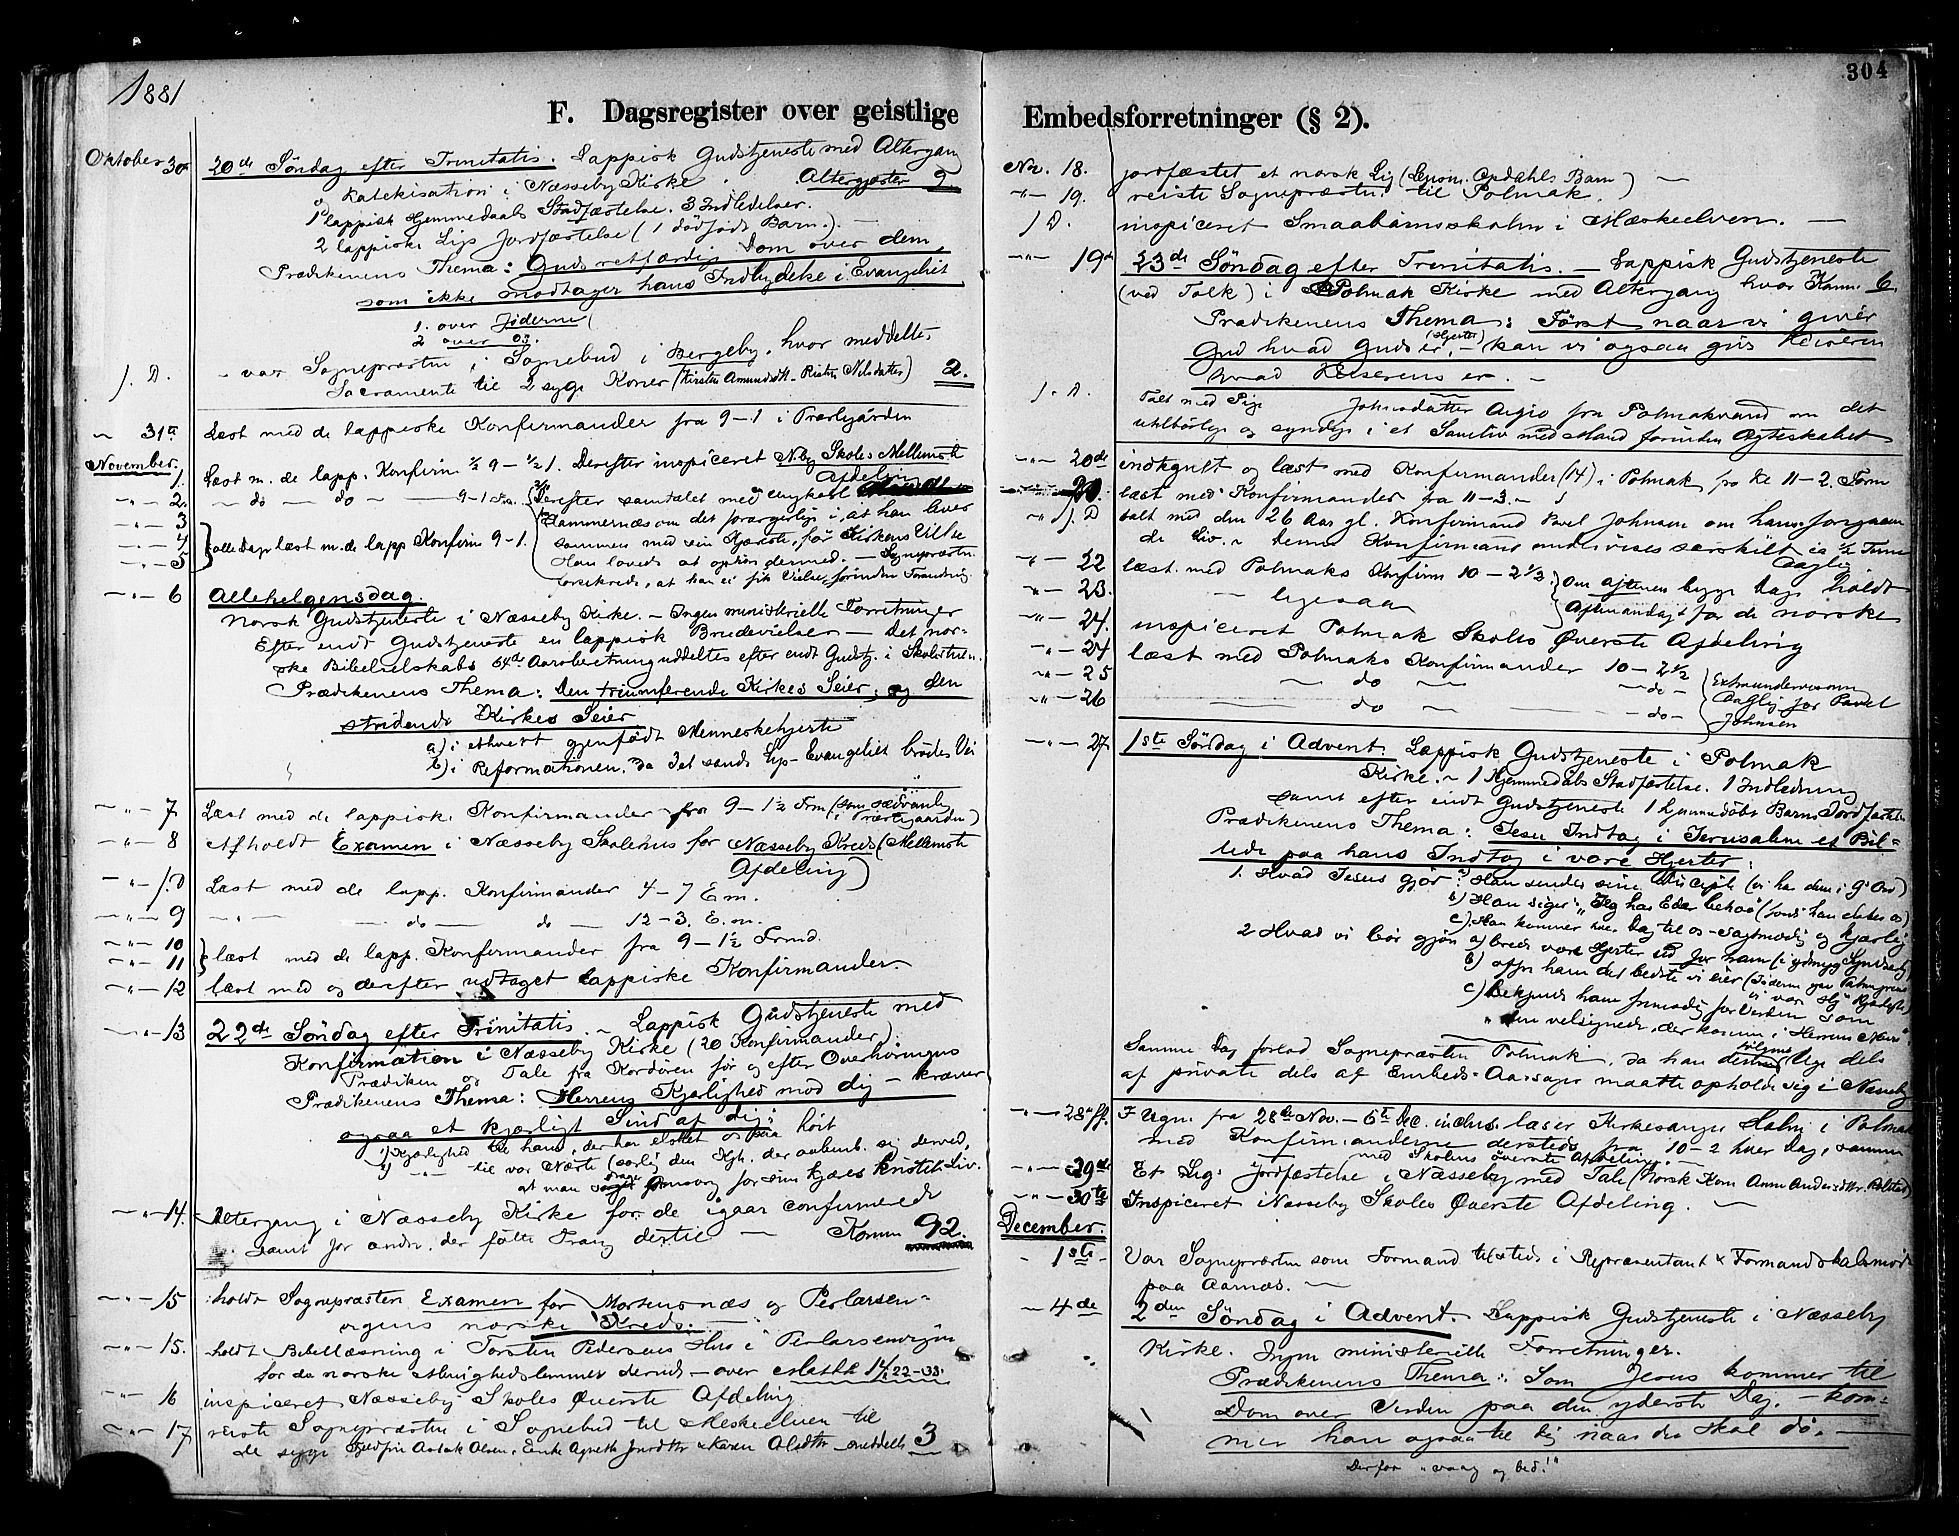 1881
304
F. Dagsregister over geistlige Embedsforretninger (§ 2).
Oktober 30 20de Søndag efter Trinitatis. Lappisk Gudstjeneste med Altergang
Katekisation i Næsseby Kirke. Altergjester 9.
1 lappisk Hjemmedaabs Stadfæstelse. 3 Indledelser.
2 lappiske Ligs Jordfæstelse (1 dødfødt Barn.) —
Prædikenens Thema: Guds retfærdige Dom over dem,
som ikke modtager hans Indbydelse i Evangeliet
1. over Jøderne
2 over os.
s. D. - var Sognepræsten i Sognebud i Bergeby, hvor meddeltes
Sacramente til 2 syge Koner (Kirsten Amundsdtr - Risten Nilsdatter) 2.
" 31te Læst med de lappiske Konfirmander fra 9-1 i Præstegården
November.
1. Læst m. de lapp. Konfirm ½ 9 - ½ 1. Derefter inspiceret N.by Skoles Mellemste Afdeling
- " - 2. — do — do — 9-1 Fm. Derefter samtalet med ungkarl
- " - 3 Hammernæs om det forargerlige i, at han lever
- " - 4 alle Dage læst m. de lapp Konfirm 9-1. sammen med sin Kjæreste, før Kirkens Vielse
- " - 5 Han lovede at ophøre dermed. — Sognepræsten
forsikrede, at han ei fik Vielse, forinden Forandring
- " - 6 Allehelgensdag.
Norsk Gudstjeneste i Næsseby Kirke. - Ingen ministerielle Forretninger
Efter endt Gudstjeneste en lappisk Brudevielse — Det nor-
ske Bibelselskabs 64de Aarsberetning uddeltes efter endt Gudstj. i Skolestuen.
Prædikenens Thema: Den triumferende Kirkes Seier, og den
stridende Kirkes Seier
a) i ethvert gjenfødt Menneskehjerte
b) i Reformationen, da det sande Lys - Evangeliet brødes Vei
- " - 7 Læst med de lappiske Konfirmander fra 9 - 1½ Frm (som sædvanlig i Præstegaarden)
- " - 8 Afholdt Examen i Næsseby Skolehus for Næsseby Kreds (Mellemste
Afdeling)
- " - s. D Læst med de lapp. Konfirmander 4-7 Em.
- " - 9 - " - — do — do — 12-3. E.m.
- " - 10
- " - 11 læst med de lapp. Konfirmander fra 9 - 1½ Frmd.
- " - 12 læst med og derefter udtaget lappiske Konfirmander.
- " - 13 22de Søndag efter Trinitatis. - Lappisk Gudstjeneste med
Konfirmation i Næsseby Kirke (20 Konfirmander)
Prædiken og Tale fra Kordøren før og efter Overhøringen
Prædikenens Thema: Herrens Kjærlighed mod dig - kræver
ogsaa et kjærligt Sind af dig:
a) Kjærlighed til ham, der har elsket os saa høit
b) - " - til vor Næste (særlig den Kjh. der aabenb. sig derved,
at man drager Omsorg for sine kjæres kristeli. Liv.
- " - 14. Altergang i Næsseby Kirke for de igaar confirmerede
samt for andre, der følte Trang dertil — Komm 92.
- " - 15 holdt Sognepræsten Examen for Mortensnæs og Perlarsen-
vigens norske Kreds.
- " - 15. holdt Bibellæsning i Torsten Pedersens Hus i Perlarsenvigen
for de norske Menighedslemmer dersteds - over Matth 14, 22-33.
- " - 16 inspiceret Næsseby Skoles Øverste Afdeling
- " - 17 reiste Sognepræsten i Sognebud til Meskelven til
de syge Aslak Olsen, Agnethe & Karen Olsdtr meddelte 3
Nov. 18. jordfæstet et norsk Lig (Lensm. Opdahls Barn) —
- " - 19. reiste Sognepræsten til Polmak.
s D. inspiceret Smaabarnsskolen i Mæskeelven. —
- " - 19de 23de Søndag efter Trinitatis. - Lappisk Gudstjeneste
(ved Tolk) i Polmak Kirke med Altergang hvor Kom. 6.
Prædikenens Thema: Først naar vi giver
Gud hvad Guds er, (Hjertet) - kan vi ogsaa give Keiseren
hvad Keiserens er. -
s. D. Talt med Pige Johnsdatter Aigio fra Polmakvand om det
utilbørlige og syndige i et Samliv med Mand forinden Ægteskabet
- " - 20de indtegnet og læst med Konfirmander (14) i Polmak fra Kl 11-2. Form
21. læst med Konfirmander fra 11-3. -
- " s. D talt med den 26 Aar gl. Konfirmand Pavel Johnsen om hans foregaaen
de Liv. - Denne Konfirmand undervises særskilt ca ½ Time
Daglig
- " - 22 læst med Polmaks Konfirm 10 - 2½. Om aftenen begge Dage holdt
- " - 23. — ligesaa Aftenandagt for de norske
- " - 24. inspiceret Polmak Skoles Øverste Afdeling
- " - 24 læst med Polmaks Konfirmander 10 - 2½
- " - 25 — do — - do - Extraundervisning
- " - 26 — do — - do - Daglig for Pavel
Johnsen
- " - 27 1ste Søndag i Advent. Lappisk Gudstjeneste i Polmak
Kirke. - 1 Hjemmedåbs Stadfæstelse. 1 Indledning
samt efter endt Gudstjeneste 1 hjemmedøbt Barns Jordfæstelse
Prædikenens Thema: Jesu Indtog i Jerusalem et Bil-
lede paa hans Indtog i vore Hjerter:
1. Hvad Jesus gjør: a) Han sender sine Disciple (vi har dem i G. Ord)
b) Han siger: "Jeg har Eder behov" (fordi han elsker os)
c) Han kommer hver Dag til os - sagtmodig og kjærlig
2 Hvad vi bør gjøre a) brede vore Hjerter ud for ham (i ydmyg Synds
b) ofre ham det bedste vi eier (Jøderne gav Palmgrene
vi vor Hj Kjærlighed)
c) Bekjende ham frimodig for Verden som
"den velsignede, der kommer i Herrens Navn"
Samme Dag forlod Sognepræsten Polmak, da han følgende Uge dels
af private dels af Embeds-Aarsager maatte opholde sig i Næsseby
- " - 28de ff. I Ugen fra 28de Nov. - 6te Dec. inclus. læser Kirkesanger Holm i Polmak
med Konfirmanderne dersteds fra 10-2 hver Dag, sammen
med Skolens øverste Afdeling. —
- " - 29de Et Ligs Jordfæstelse i Næsseby med Tale (Norsk Kone Anne Andersdtr.
- " - 30te Inspiceret Næsseby Skoles Øverste Afdeling. —
December.
- 1ste - Var Sognepræsten som Formand tilstede i Repræsentant & Formandskabsmøde
paa Aarnæs. —
- 4de 2den Søndag i Advent. Lappisk Gudstjeneste i Næsseby
Kirke. Ingen ministerielle Forretninger.
Prædikenens Thema: Som Jesus kommer til
Dom over Verden paa den yderste Dag, - kom-
mer han ogsaa til dig naar du skal dø. —
Derfor "vaag og bed!"